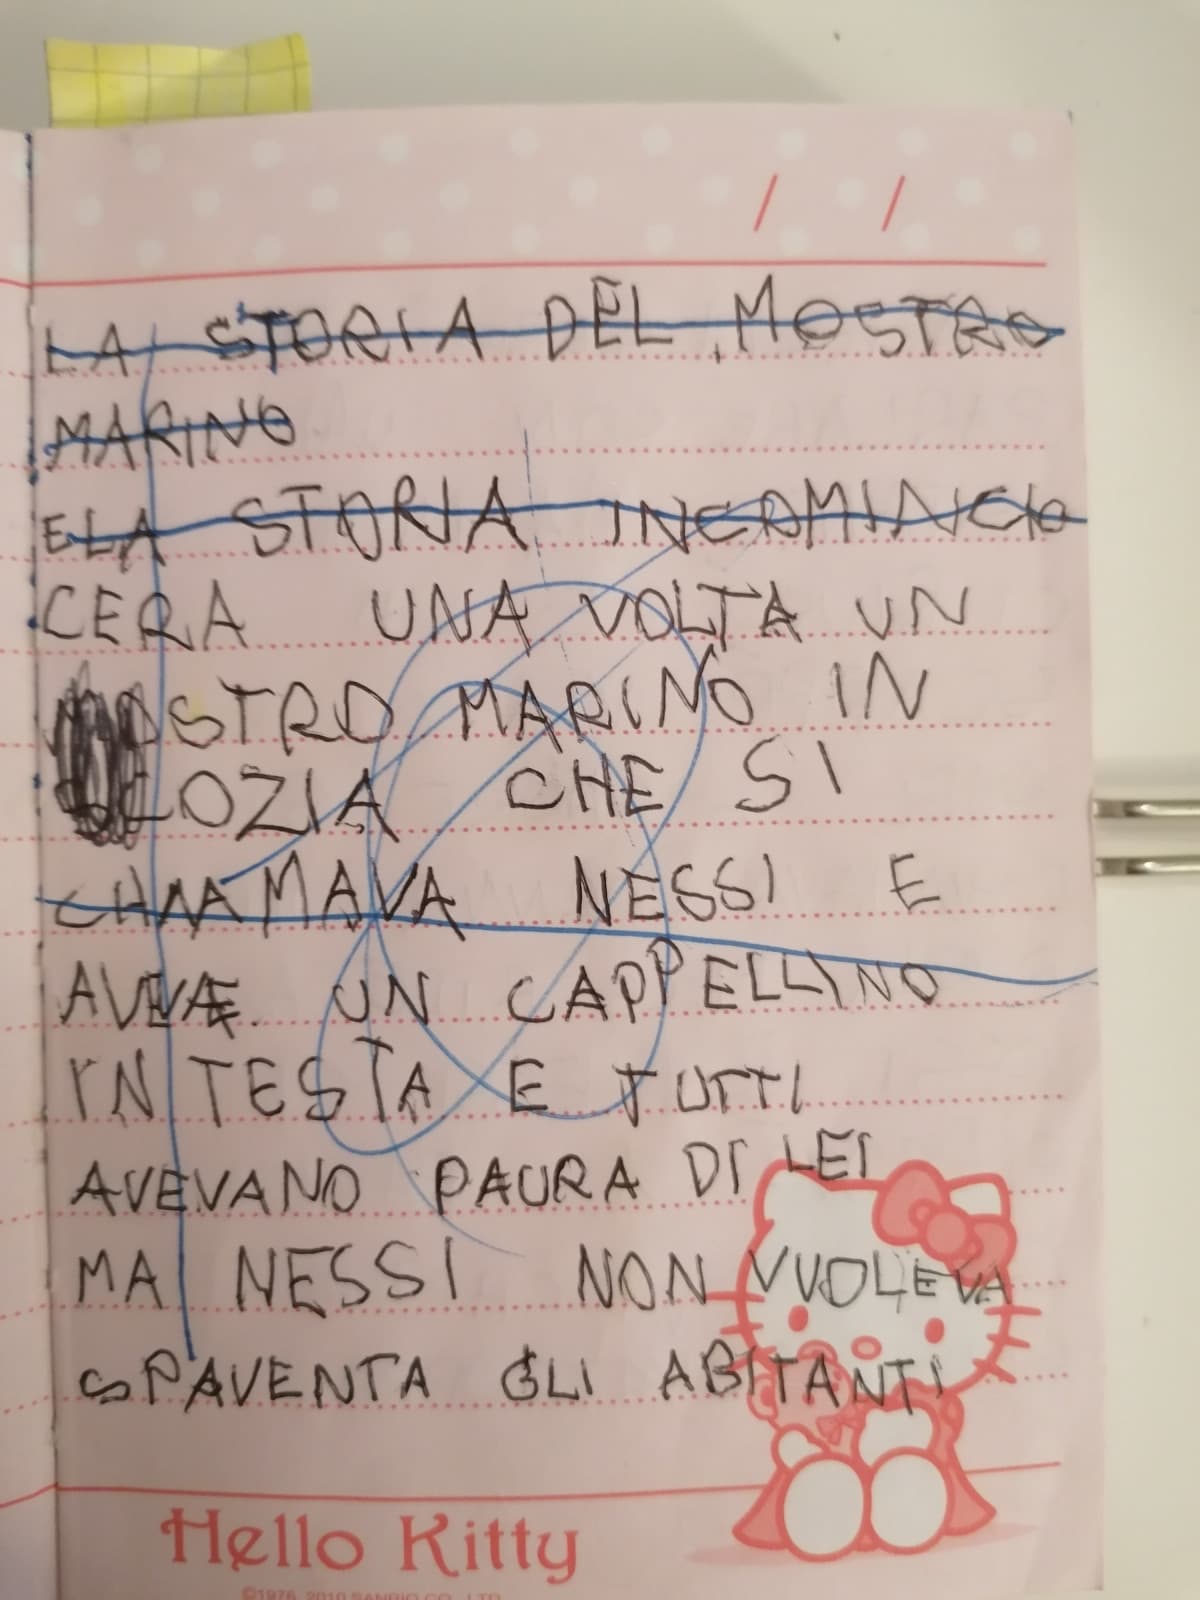 LA STORIA DEL MOSTRO
MARINO
E LA STORIA INCOMINCIO
CERA UNA VOLTA UN
MOSTRO MARINO IN
SCOZIA CHE SI
CHIAMAVA NESSI E
AVEVA UN CAPPELLINO
IN TESTA E TUTTI
AVEVANO PAURA DI LEI
MA NESSI NON VUOLEVA
SPAVENTA GLI ABITANTI
Hello Kitty
©1976, 2010 SANRIO CO., LTD.